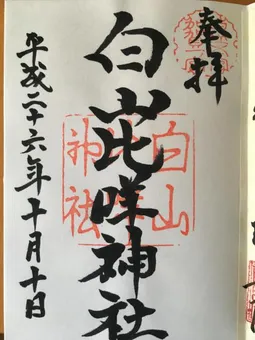 奉拝
白山比咩神社
白山
比咩
神社
平成二十六年十月十日